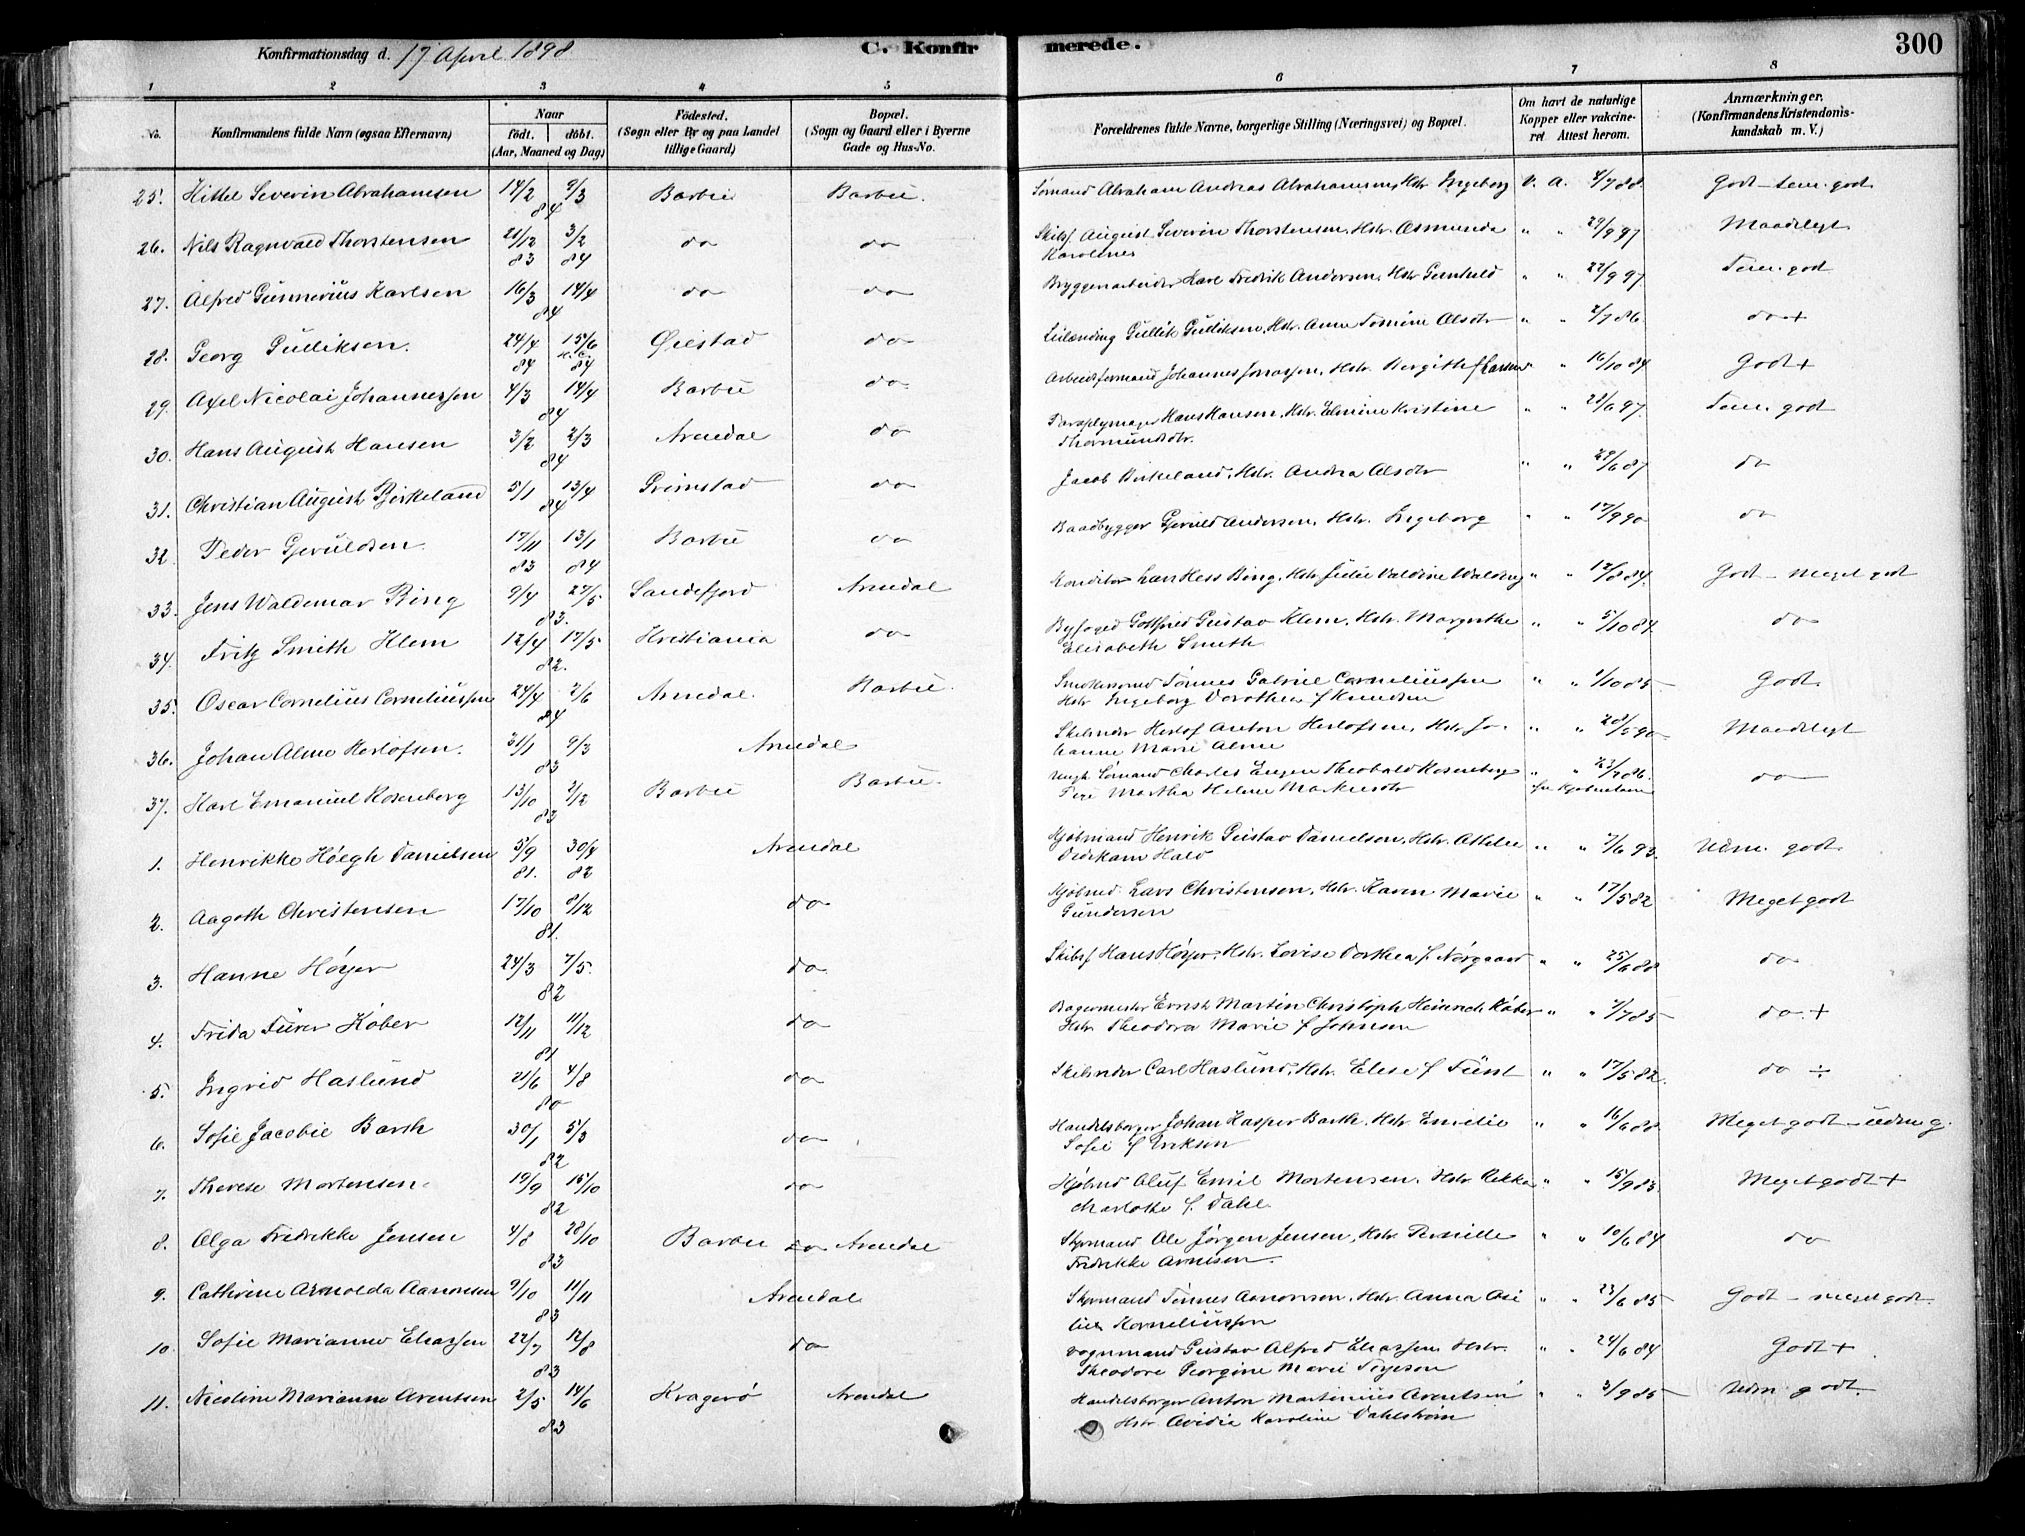 Konfirmationsdag d. 17 April 1898
C. Konfirmerede.
300
1 2 3 4 5 6 7 8
No.
Konfirmandens fulde Navn (ogsaa Efternavn)
Naar
födt. döbt.
(Aar, Maaned og Dag)
Födested.
(Sogn eller By og paa Landet
tillige Gaard)
Bopæl.
(Sogn og Gaard eller i Byerne
Gade og Hus-No.
Forældrenes fulde Navne, borgerlige Stilling (Næringsvei) og Bopæl.
Om havt de naturlige
Kopper eller vakcine-
ret Attest herom.
Anmærkninger.
(Konfirmandens Kristendoms-
kundskab m. V.)
25. Kittel Severin Abrahamsen 14/2 9/3 84 Barbu Barbu. Sømand Abraham Andreas Abrahamsen, Hstr. Ingeborg V. A. 4/7 88. Godt - tem. godt
26. Nils Ragnvald Thorstensen 21/12 83 3/2 84 do do Skibsf. August Severin Thorstensen, Hstr. Osmunda " " 29/9 97 Maadeligt
Karoline
27. Alfred Gunnerius Karlsen 16/3 14/4 84 do do Bryggearbeider Karl Fredrik Andersen, Hstr Gunhild " " 22/9 97 Tem. godt
28. Georg Gulliksen. 24/4 84 15/6 84 Øiestad do Leilænding Gullik Gulliksen, Hstr. Anne Tomine Olsdtr " " 2/7 86 do +
29. Axel Nicolai Johannessen 4/3 14/4 84 Barbu do Arbeidsformand Johannes Jonassen, Hstr. Bergitte f Larsen " " 16/10 84 Godt +
30. Hans August Hansen 3/2 2/3 84 Arendal do Hans Hansen, Hstr. Elmine Kristine " " 28/6 97 Tem. godt
Thormundsdtr.
31. Christian August Birkeland 5/1 13/4 84 Grimstad do Jacob Birkeland, Hstr. Andrea Olsdtr " " 28/6 87 do
32 Peder Gjeruldsen 17/11 83 13/1 84 Barbu do Baadbygger Gjeruld Andersen, Hstr. Ingeborg " " 17/9 90 do
33. Jens Waldemar Ring 9/4 27/5 83. Sandefjord Arendal Konditor Lars Hess Ring, Hstr Julie Valdine Walding " " 12/8 84. Godt - meget godt
34. Fritz Smith Klem 12/4 17/5 82. Kristiania do Byfoged Gottfred Gustav Klem, Hstr. Margrethe " " 5/10 84. do
Elisabeth Smith
35. Oscar Cornelius Corneliussen 24/4 2/6 84 Arendal. Barbu. Tønnes Gabriel Corneliussen " " 1/10 85 Godt
Hstr Ingeborg Dorothea f Knudsen
36. Johan Alme Herlofsen. 31/1 9/3 83 Arendal Herlof Anton Herlofsen, Hstr. Jo- " " 28/5 90 Maadeligt
hanne Marie Alme
37. Karl Emanuel Rosenberg 13/10 2/12 83 Barbu Barbu. Ungk Sømand Charles Eugen Theobald Rosenberg " " 23/7 86. do
Pige Martha Helene Markusdtr
1. Henrikke Høegh Danielsen 5/9 81. 30/8 82 Arendal Kjøbmand Henrik Gustav Danielsen, Hstr. Othilie " " 7/6 93. Udm. godt
Didrikam Hald
2. Aagoth Christensen 17/10 8/12 81. do Kjøbmd. Lars Christensen, Hstr. Karen Marie " " 17/5 82 Meget godt
Gundersen
3. Hanne Höyer 24/3 7/5. 82 do Skibsf Hans Höyer, Hstr. Lovise Dorthea f. Nørgaard " " 25/6 88 do
4. Frida Fürer Køber 12/11 11/12 81 do Bagermester Ernst Martin Christoph Heinrich Køber " " 2/7 85 do. +
Hstr Theodora Marie f Johnsen
5. Ingrid Haslund 21/6 4/8 80 do Carl Haslund, Hstr. Elise f Fürst " " 17/5 82. do ÷
6. Sofie Jacobie Barth 30/1 5/3 82 do Handelsborger Johan Kasper Barth. Hstr Emilie " " 16/6 88. Meget godt - udm g.
Sofie f Eriksen
7. Therese Mortensen. 19/9 15/10 82 do Kjøbmd Oluf Emil Mortensen. Hstr Rikka " " 15/9 83. Meget godt +
Charlotte f. Dahl
8. Olga Fredrikke Jensen 4/8 28/10 83 Barbu Arendal Styrmand Ole Jörgen Jensen, Hstr Pernille " " 10/6 84 do
Fredrikke Arntsen.
9. Cathrine Arnolda Aanonsen 9/10 11/11 83 Arendal Styrmand Tønnes Aanonsen, Hstr. Anna Ose " " 23/6 85 Godt - meget godt.
lie Korneliussen
10. Sofie Marianne Eliassen 22/7 12/8 83 do Vognmand Gustav Alfred Eliassen, Hstr. " " 24/6 84 Godt +
Theodore Georgine Marie Torjesen
11. Nicoline Marianne Arentsen 2/5 14/6 83 Kragerø Arendal Handelsborger Anton Martinius Arentsen " " 3/9 85 Udm godt
Hstr. Ovidia Karoline Dahlstrøm